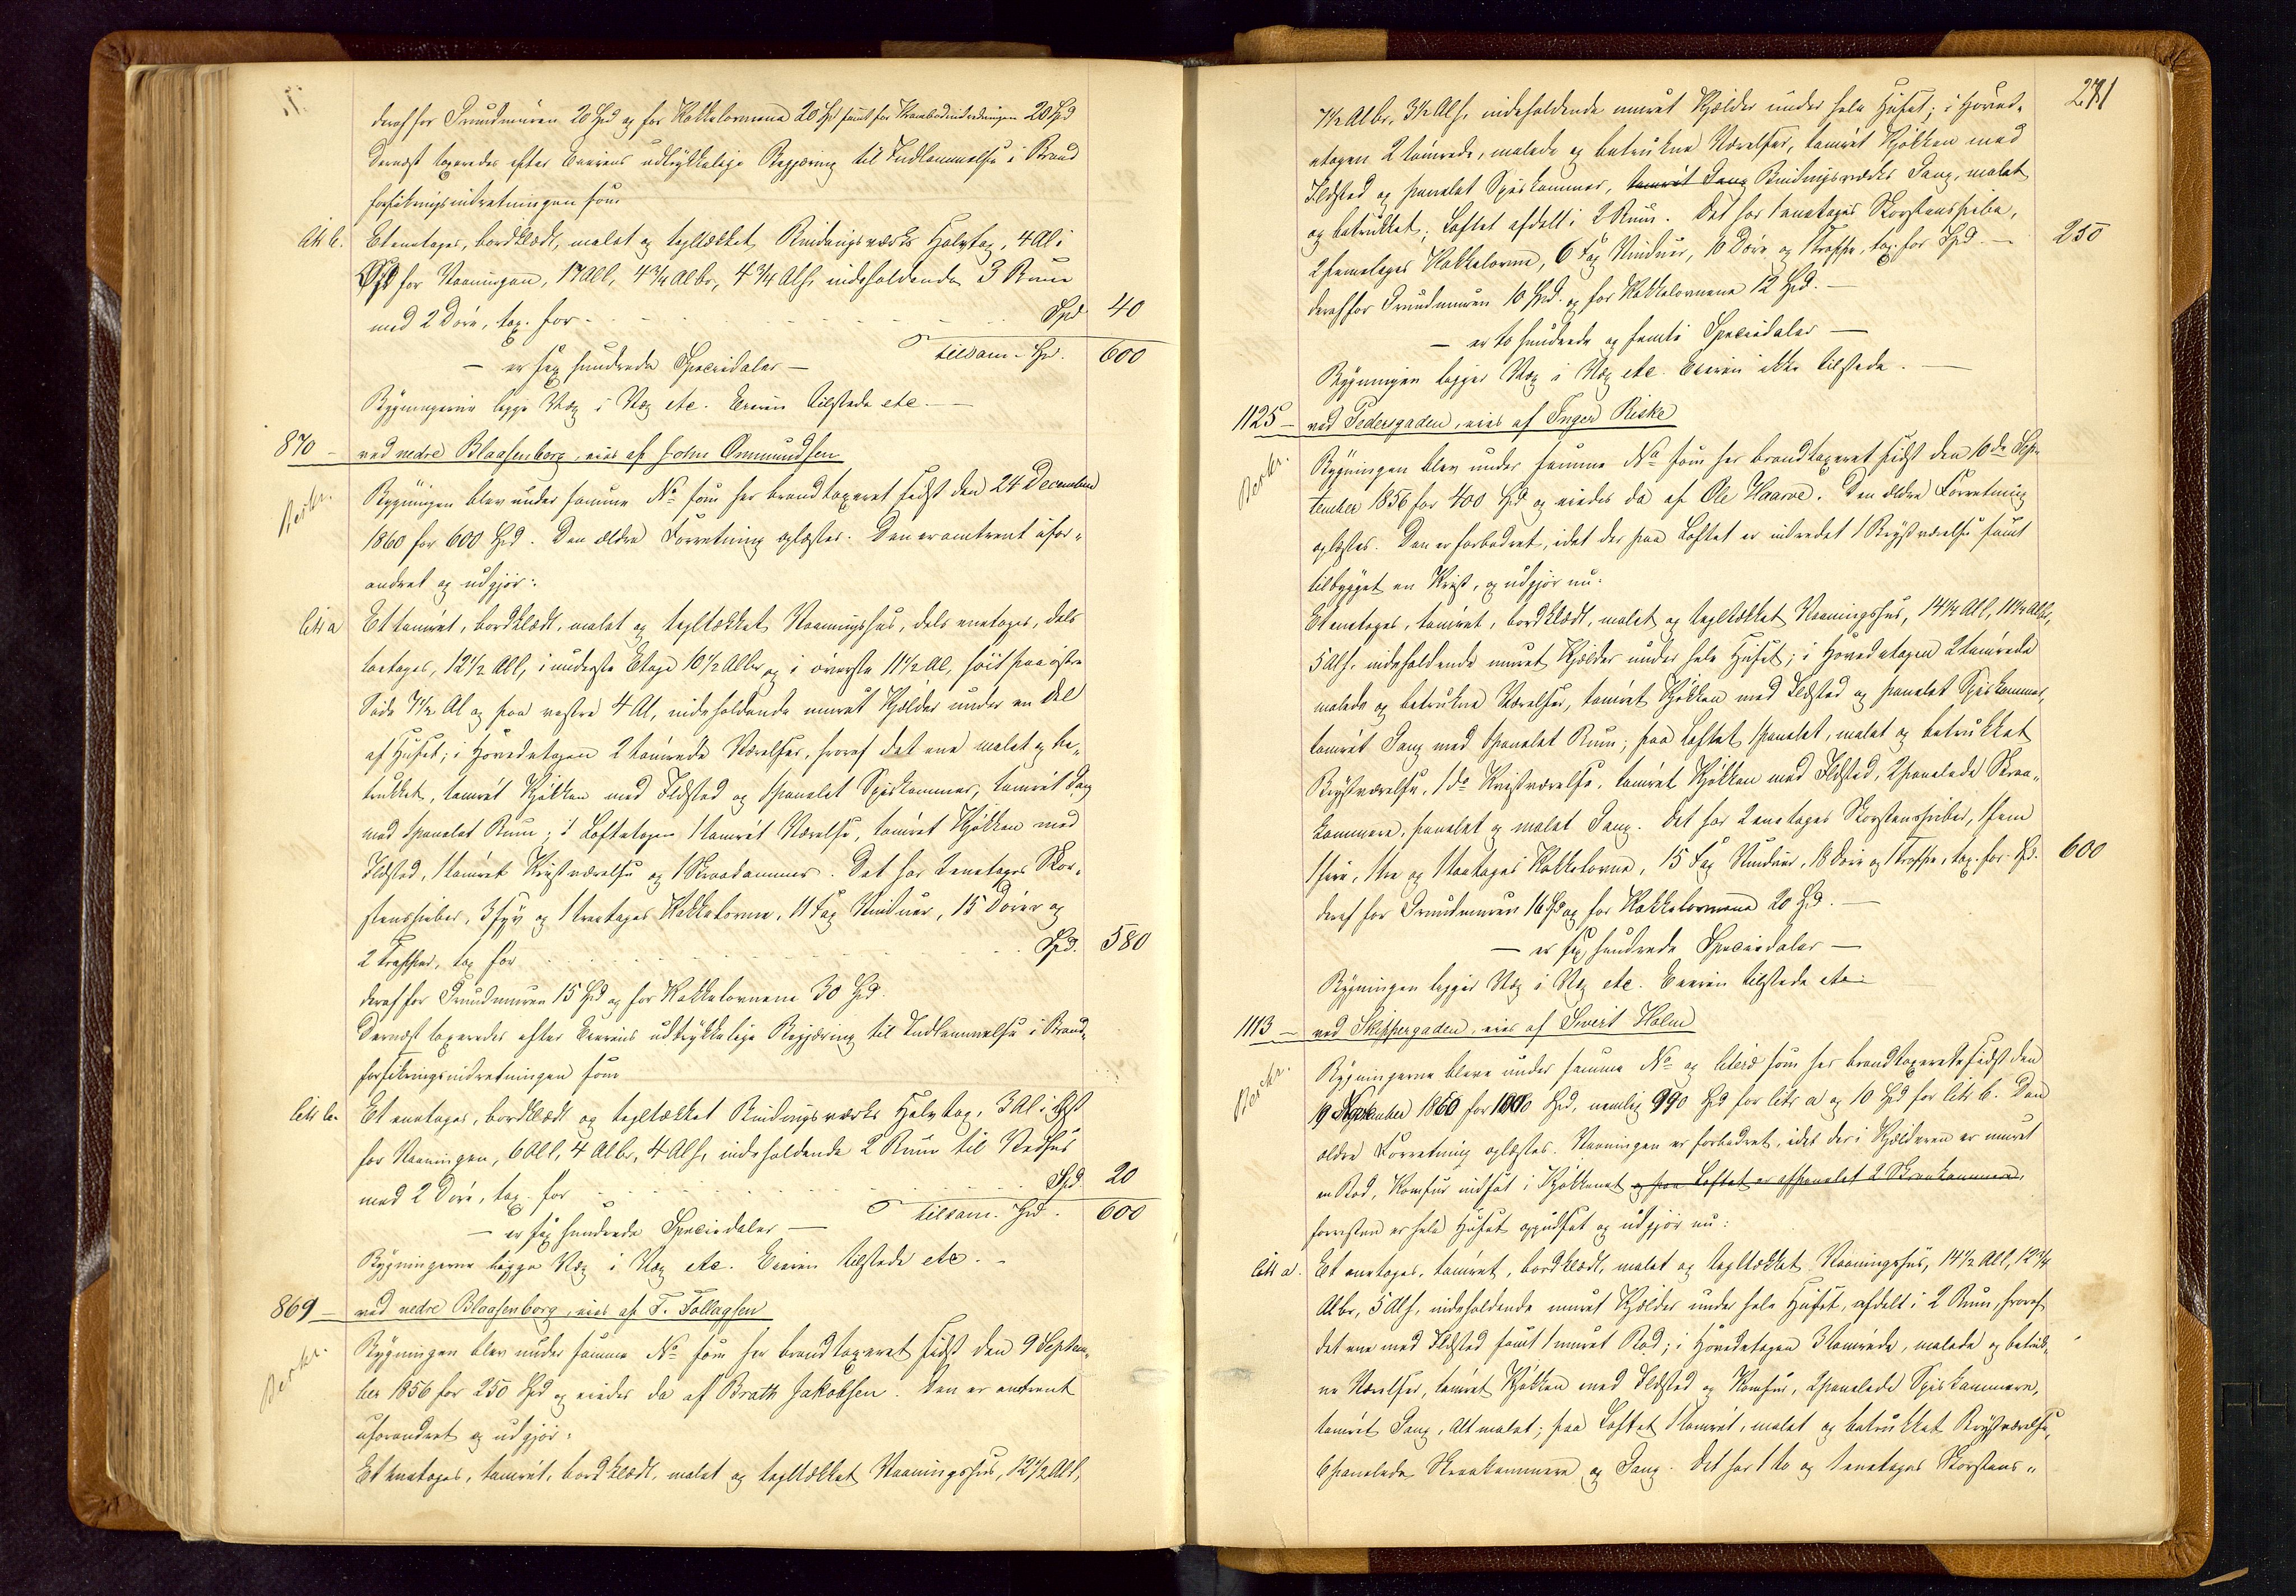 deraf for Grundmuren 20 Spd og for Kakkelovnene 20 Spd samt for Krambodindredningen 20 Spd
Dernæst taxeredes efter Eierens udtrykkelige Begjæring til Indlemmelse i Brand
forsikringsindretningen som
Litr b. Et enetages, bordklædt, malet og tegltækket Bindingsværks Halvtag, 4 Al i
Øst for Vaaningen, 17 All, 4 3/4 Albr, 4 3/4 Alh, indeholdende 3 Rum
med 2 Døre, tax. for - Spd 40
- er sex hundrede Speciedaler - tilsam. Spd. 600
Bygningerne ligge Væg i Væg etc. Eieren tilstede etc. -
870 - ved nedre Blaasenborg, eies af John Ommundsen
Beskr. Bygningen blev under samme No som her brandtaxeret sidst den 24 December
1860 for 600 Spd. Den ældre Forretning oplæstes. Den er omtrent ufor-
andret og udgjør:
Litr a Et tømret, bordklædt, malet og tegltækket Vaaningshus, dels enetages, dels
toetages, 12 1/2 All, i underste Etage 10 1/2 Albr og i øverste 11 1/2 Al, høit paa østre
Side 7 1/2 Al og paa vestre 4 Al, indeholdende muret Kjælder under en Del
af Huset; i Hovedetagen 2 tømrede Værelser, hvoraf det ene malet og be-
trukket, tømret Kjøkken med Ildsted og 1 panelet Spiskammer, tømret Gang
med 1 panelet Rum; i Loftetagen 1 tømret Værelse, tømret Kjøkken med
Ildsted, 1 tømret Kvistværelse og 1 Skraakammer. Det har 2 enetages Skor-
stenspiber, 3 fyr og 1 treetages Kakkelovne, 11 Fag Vinduer, 15 Dører og
2 Trapper, tax for Spd. 580
deraf for Grundmuren 15 Spd og for Kakkelovnene 30 Spd.
Dernæst taxeredes efter Eierens udtrykkelige Begjæring til Indlemmelse i Brand-
forsikringsindretningen som
Litr b. Et enetages, bordklædt og tegltækket Bindingsværks Halvtag, 3 Al i Øst
for Vaaningen, 6 All, 4 Albr, 4 Alh, indeholdende 2 Rum til Vedhus
med 2 Døre, tax. for Spd 20
- er sex hundrede Speciedaler - tilsam. Spd. 600
Bygningerne ligge Væg i Væg etc. Eieren tilstede etc. -
869 - ved nedre Blaasenborg, eies af T. Tollagsen
Beskr. Bygningen blev under samme No som her brandtaxeret sidst den 9 Septem-
ber 1856 for 250 Spd og eiedes da af Brath Jakobsen. Den er omtrent
uforandret og udgjør:
Et enetages, tømret, bordklædt, malet og tegltækket Vaaningshus, 12 1/2 All,
271
7 1/2 Albr, 3 1/2 Alh, indeholdende muret Kjælder under hele Huset; i Hoved-
etagen 2 tømrede, malede og betrukne Værelser, tømret Kjøkken med
Ildsted og panelet Spiskammer, tømret Gang Bindingsværks Gang, malet
og betrukket; Loftet afdelt i 2 Rum. Det har 1 enetages Skorstenspibe,
2 femetages Kakkelovne, 6 Fag Vinduer, 10 Døre og 1 Trappe, tax. for Spd. - 250
deraf for Grundmuren 10 Spd. og for Kakkelovnene 12 Spd. -
- er to hundrede og femti Speciedaler -
Bygningen ligger Væg i Væg etc. Eieren ikke tilstede. -
1125 - ved Pedersgaden, eies af Inger Riske
Beskr. Bygningen blev under samme No som her brandtaxeret sidst den 6de Sep-
tember 1856 for 400 Spd og eiedes da af Ole Haarve. Den ældre Forretning
oplæstes. Den er forbedret, idet der paa Loftet er indredet 1 Brystværelse samt
tilbygget en Kvist, og udgjør nu:
Et enetages, tømret, bordklædt, malet og tegltækket Vaaningshus, 14 1/4 All, 11 1/4 Albr,
5 Alh, indeholdende muret Kjælder under hele Huset; i Hovedetagen 2 tømrede
malede og betrukne Værelser, tømret Kjøkken med Ildsted og panelet Spiskammer,
tømret Gang med 1 panelet Rum; paa Loftet 1 panelet, malet og betrukket
Brystværelse, 1 do Kvistværelse, tømret Kjøkken med Ildsted, 2 panelede Skraa-
kammere, panelet og malet Gang. Det har 2 enetages Skorstenspiber, 1 fem
1 fire, 1 tre og 1 toetages Kakkelovne, 15 Fag Vinduer, 18 Døre og 1 Trappe, tax. for Spd. 600
deraf for Grundmuren 16 Spd og for Kakkelovnene 20 Spd. -
- er sex hundrede Speciedaler -
Bygningen ligger Væg i Væg etc. Eieren tilstede etc -
1113 - ved Skippergaden, eies af Sivert Holm
Beskr. Bygningerne bleve under samme No og litera som her brandtaxerede sidst den
19 September 1860 for 1000 Spd, nemlig 990 Spd for litr a og 10 Spd for litr b. Den
ældre Forretning oplæstes. Vaaningen er forbedret, idet der i Kjælderen er muret
en Bod, Komfur indsat i Kjøkkenet og paa Loftet er afpanelet 2 Skraakammere,
forresten er hele Huset oppudset og udgjør nu:
Litr a. Et enetages, tømret, bordklædt, malet og tegltækket Vaaningshus, 14 1/2 All, 12 1/4
Albr, 5 Alh, indeholdende muret Kjælder under hele Huset, afdelt i 2 Rum, hvoraf
det ene med Ildsted samt 1 muret Bod; i Hovedetagen 3 tømrede, malede og betruk-
ne Værelser, tømret Kjøkken med Ildsted og Komfur, 2 panelede Spiskammere,
tømret Gang, Alt malet; paa Loftet 1 tømret, malet og betrukket Brystværelse,
6 panelede Skraakammere og Gang. Det har 1 to og 1 enetages Skorstens-